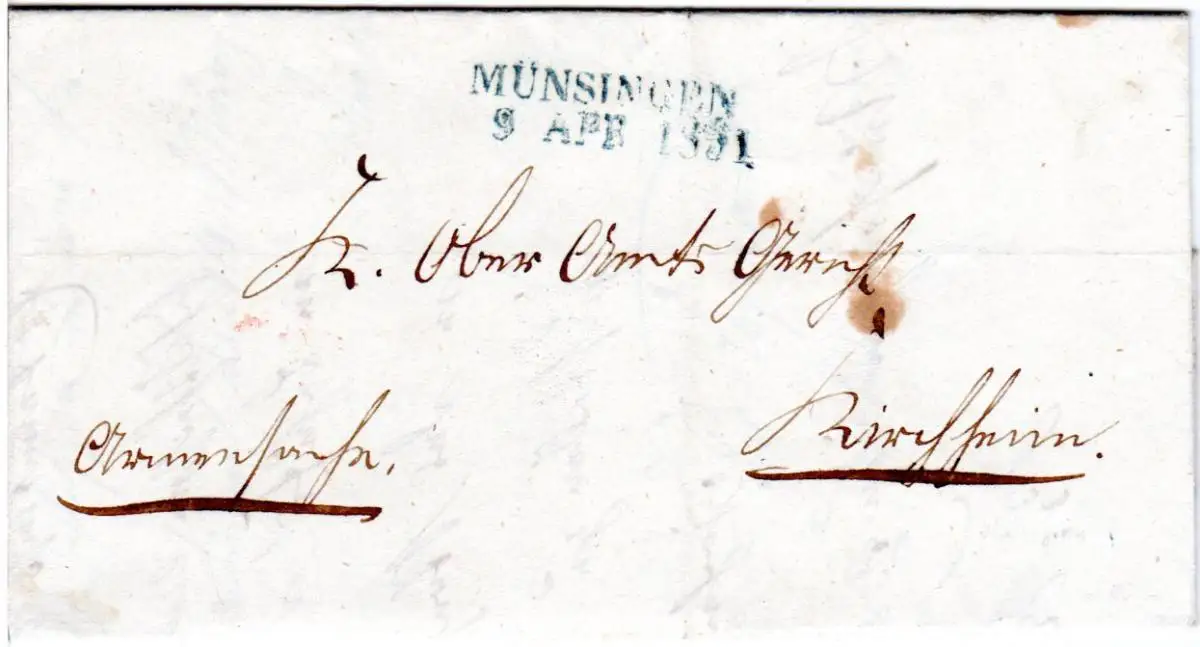 MÜNSINGEN
9 APR 1851
K. Ober Amts Gericht
Kirchheim.
Armensache.